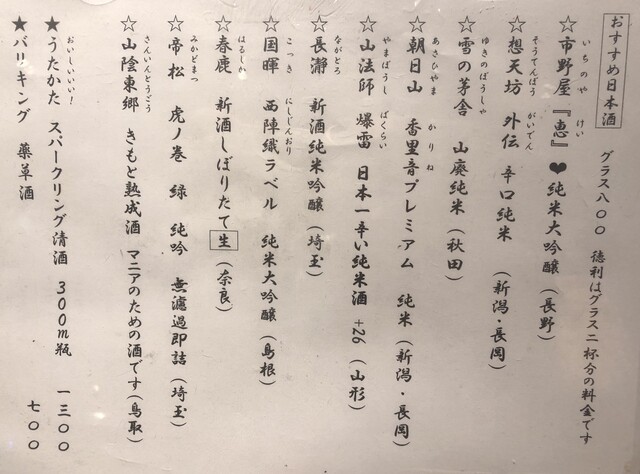 おすすめ日本酒 グラス八〇〇 徳利はグラス二杯分の料金です
いちのや けい
☆市野屋『恵』❤純米大吟醸(長野)
そうてんぼう がいでん
☆想天坊 外伝 辛口純米 (新潟・長岡)
ゆきのぼうしゃ
☆雪の茅舎 山廃純米(秋田)
あさひやま かりね
☆朝日山 香里音プレミアム 純米(新潟・長岡)
やまほうし ばくらい
☆山法師 爆雷 日本一辛い純米酒 +26 (山形)
ながとろ
☆長瀞 新酒純米吟醸(埼玉)
こっき にしじんおり
☆国暉 西陣織ラベル 純米大吟醸(島根)
はるしか
☆春鹿 新酒しぼりたて生(奈良)
みかどまつ
☆帝松 虎ノ巻 緑 純吟 無濾過即詰(埼玉)
さんいんとうごう
☆山陰東郷 きもと熟成酒 マニアのための酒です(鳥取)
おいしいいい!
★うたかた スパークリング清酒 300㎖瓶 一三〇〇
★バリキング 薬草酒 七〇〇